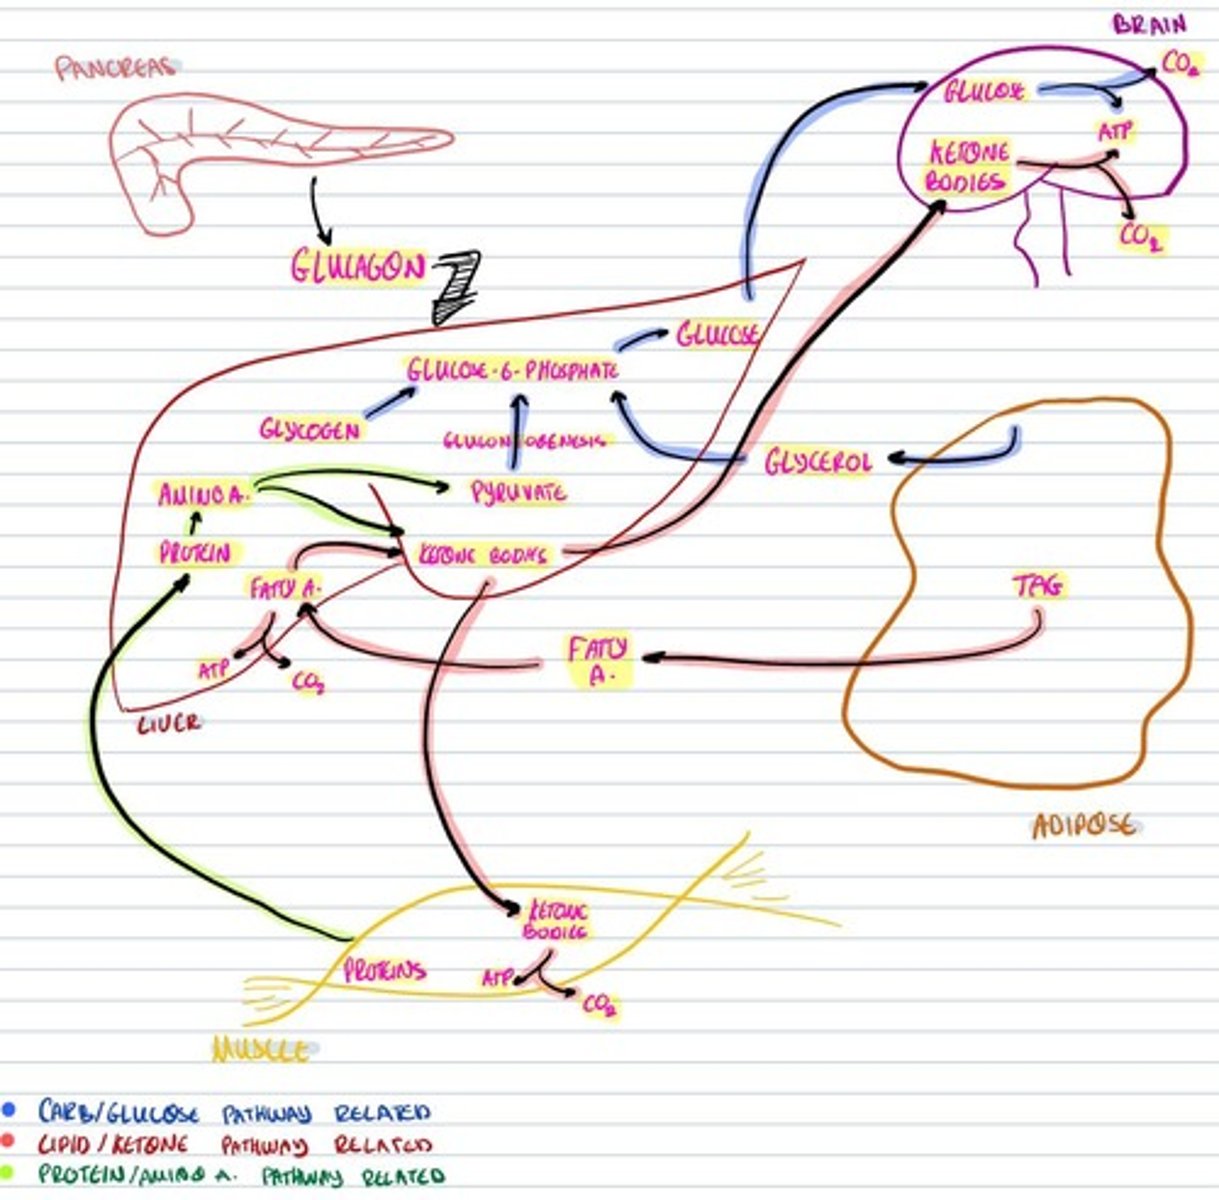 BRAIN
PANCREAS
CO2
GLUCOSE
ATP
KETONE
BODIES
CO2
GLUCAGON
GLUCOSE
GLUCOSE-6-PHOSPHATE
GLYCOGEN
GLUCONEOGENESIS
GLYCEROL
AMINO A.
PYRUVATE
PROTEIN
KETONE BODIES
FATTY A.
TAG
ATP
CO2
FATTY
A.
LIVER
ADIPOSE
KETONE
BODIES
PROTEINS
ATP
CO2
MUSCLE
CARB/GLUCOSE PATHWAY RELATED
LIPID/KETONE PATHWAY RELATED
PROTEIN/AMINO A. PATHWAY RELATED